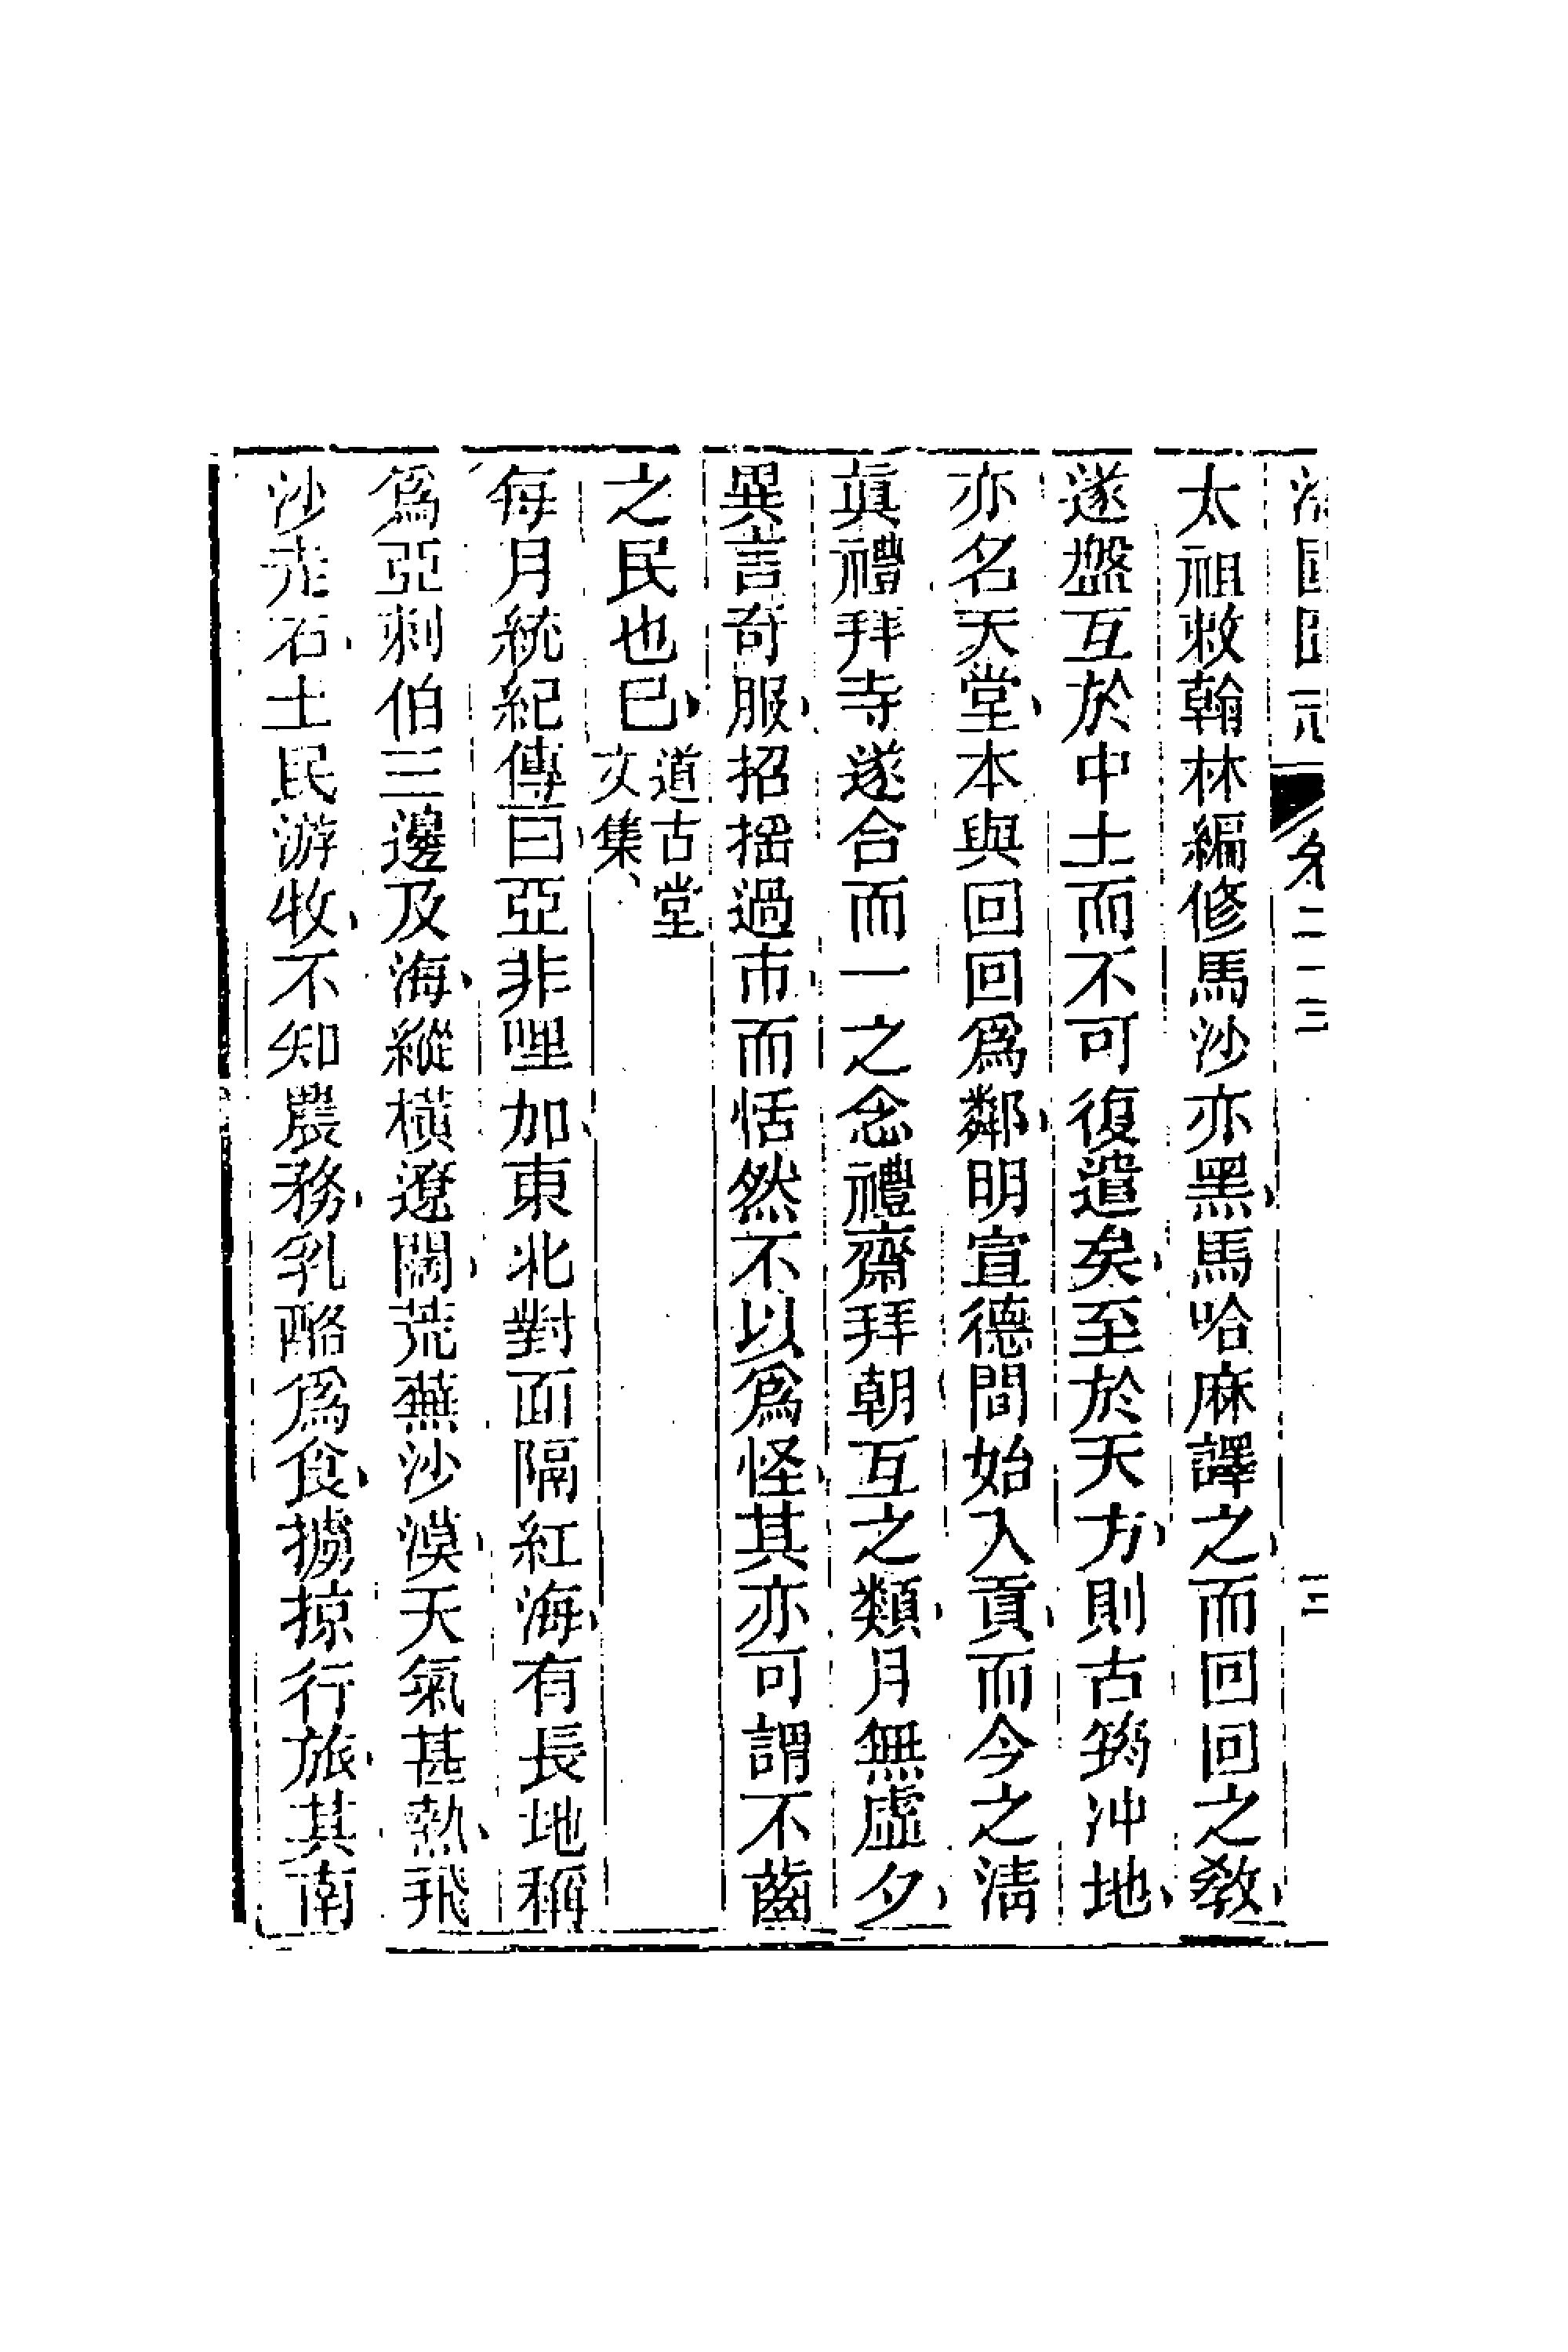 海國圖志 卷二十三 三
太祖敕翰林編修馬沙亦黑馬哈麻譯之而回回之敎
遂盤互於中土而不可復遣矣至於天方則古筠沖地
亦名天堂本與回回爲鄰明宣德間始入貢而今之淸
眞禮拜寺遂合而一之念禮齋拜朝互之類月無虛夕
異言奇服招搖過市而恬然不以爲怪其亦可謂不齒
之民也已、道古堂文集、
每月統紀傳曰亞非哩加東北對面隔紅海有長地稱
爲亞剌伯三邊及海縱橫遼闊荒蕪沙漠天氣甚熱飛
沙走石土民游牧不知農務乳酪爲食擄掠行旅其南